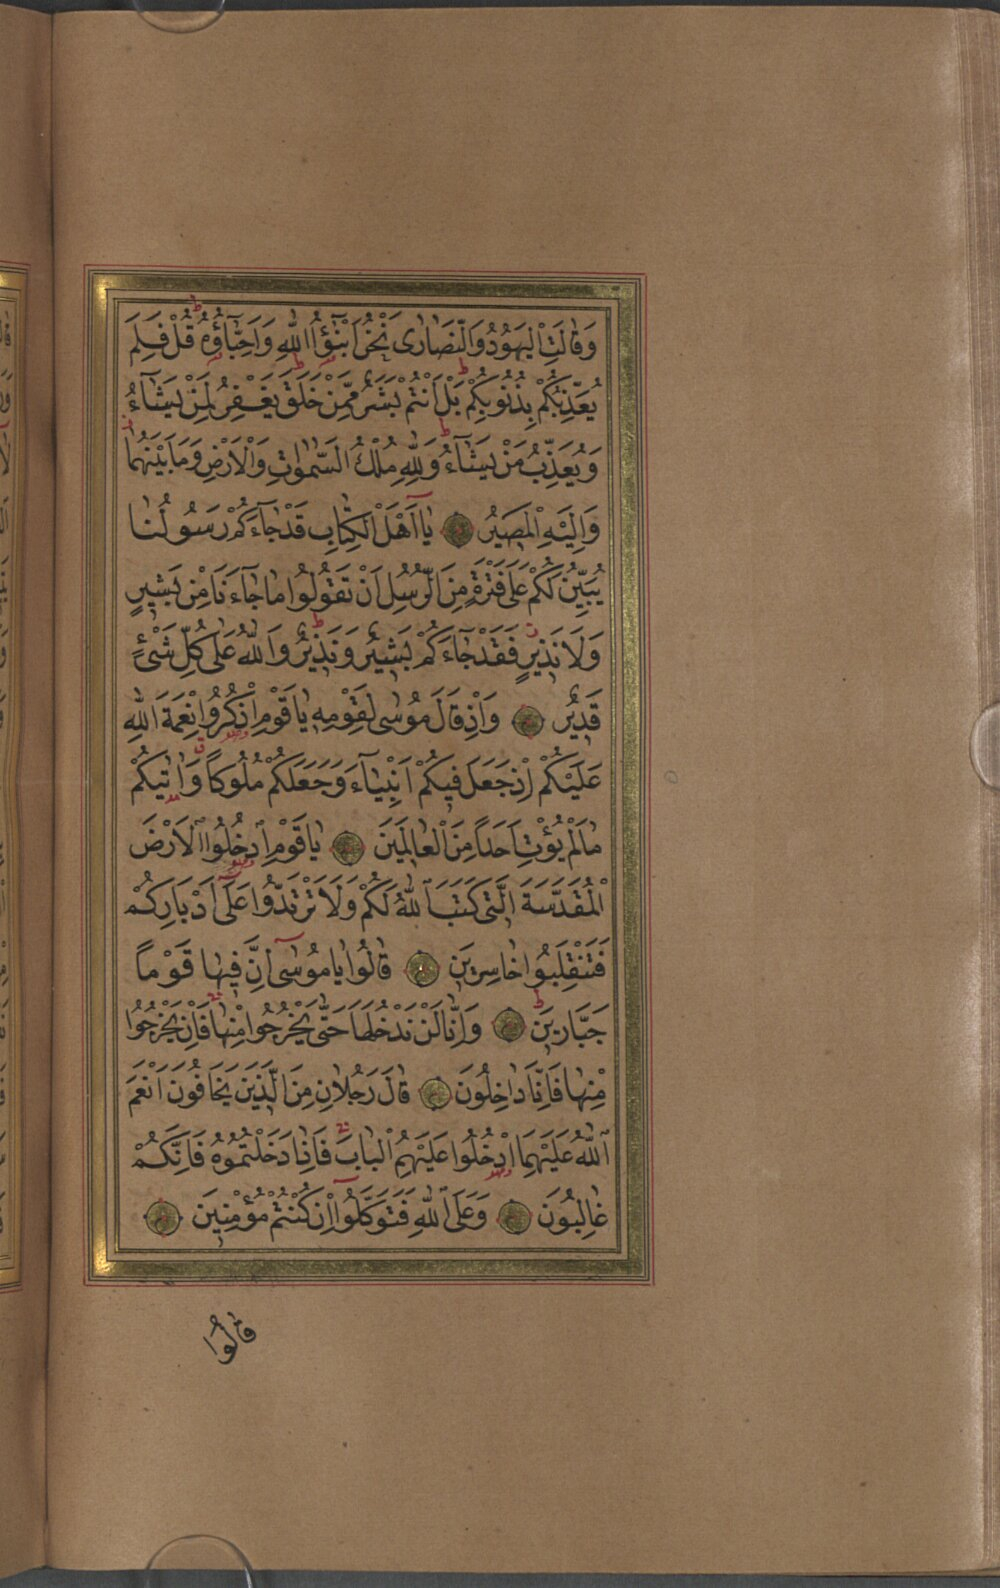 وَقَالَتِ الْيَهُودُ وَالنَّصَارٰى نَحْنُ اَبْنٰٓؤُا اللّٰهِ وَاَحِبَّٓاؤُ۬هُ قُلْ فَلِمَ
يُعَذِّبُكُمْ بِذُنُوبِكُمْ بَلْ اَنْتُمْ بَشَرٌ مِمَّنْ خَلَقَ يَغْفِرُ لِمَنْ يَشَٓاءُ
وَيُعَذِّبُ مَنْ يَشَٓاءُ وَلِلّٰهِ مُلْكُ السَّمٰوَاتِ وَالْاَرْضِ وَمَا بَيْنَهُمَا
وَاِلَيْهِ الْمَصِيرُ يَٓا اَهْلَ الْكِتَابِ قَدْ جَٓاءَكُمْ رَسُولُنَا
يُبَيِّنُ لَكُمْ عَلٰى فَتْرَةٍ مِنَ الرُّسُلِ اَنْ تَقُولُوا مَا جَٓاءَنَا مِنْ بَشِيرٍ
وَلَا نَذِيرٍ فَقَدْ جَٓاءَكُمْ بَشِيرٌ وَنَذِيرٌ وَاللّٰهُ عَلٰى كُلِّ شَيْءٍ
قَدِيرٌ وَاِذْ قَالَ مُوسٰى لِقَوْمِهِ يَا قَوْمِ اذْكُرُوا نِعْمَةَ اللّٰهِ
عَلَيْكُمْ اِذْ جَعَلَ فِيكُمْ اَنْبِيَٓاءَ وَجَعَلَكُمْ مُلُوكاً وَاٰتٰيكُمْ
مَا لَمْ يُؤْتِ اَحَداً مِنَ الْعَالَمِينَ يَا قَوْمِ ادْخُلُوا الْاَرْضَ
الْمُقَدَّسَةَ الَّتِي كَتَبَ اللّٰهُ لَكُمْ وَلَا تَرْتَدُّوا عَلٰٓى اَدْبَارِكُمْ
فَتَنْقَلِبُوا خَاسِرِينَ قَالُوا يَا مُوسٰٓى اِنَّ فِيهَا قَوْماً
جَبَّارِينَ وَاِنَّا لَنْ نَدْخُلَهَا حَتّٰى يَخْرُجُوا مِنْهَا فَاِنْ يَخْرُجُوا
مِنْهَا فَاِنَّا دَاخِلُونَ قَالَ رَجُلَانِ مِنَ الَّذِينَ يَخَافُونَ اَنْعَمَ
اللّٰهُ عَلَيْهِمَا ادْخُلُوا عَلَيْهِمُ الْبَابَ فَاِذَا دَخَلْتُمُوهُ فَاِنَّكُمْ
غَالِبُونَ وَعَلَى اللّٰهِ فَتَوَكَّلُٓوا اِنْ كُنْتُمْ مُؤْمِنِينَ
قَالُوا